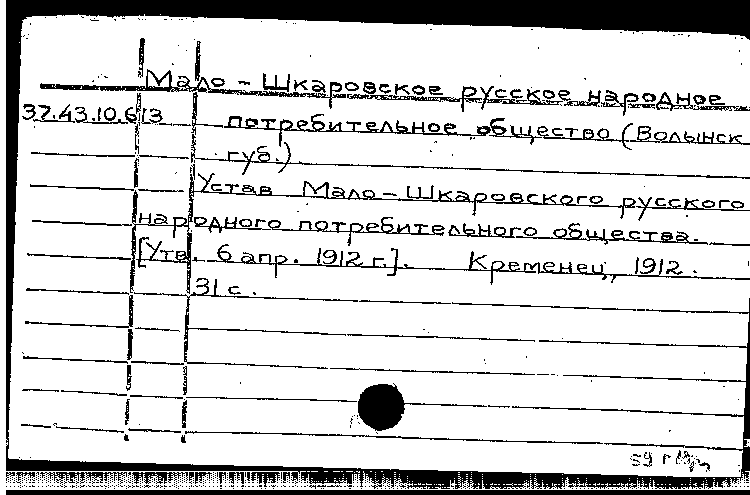 Мало-Шкаровское русское народное
37.43.10.613 потребительное общество (Волынск.
губ.)
Устав Мало-Шкаровского русского
народного потребительного общества.
[Утв. 6 апр. 1912 г.]. Кременец, 1912.
31 с.
59 г